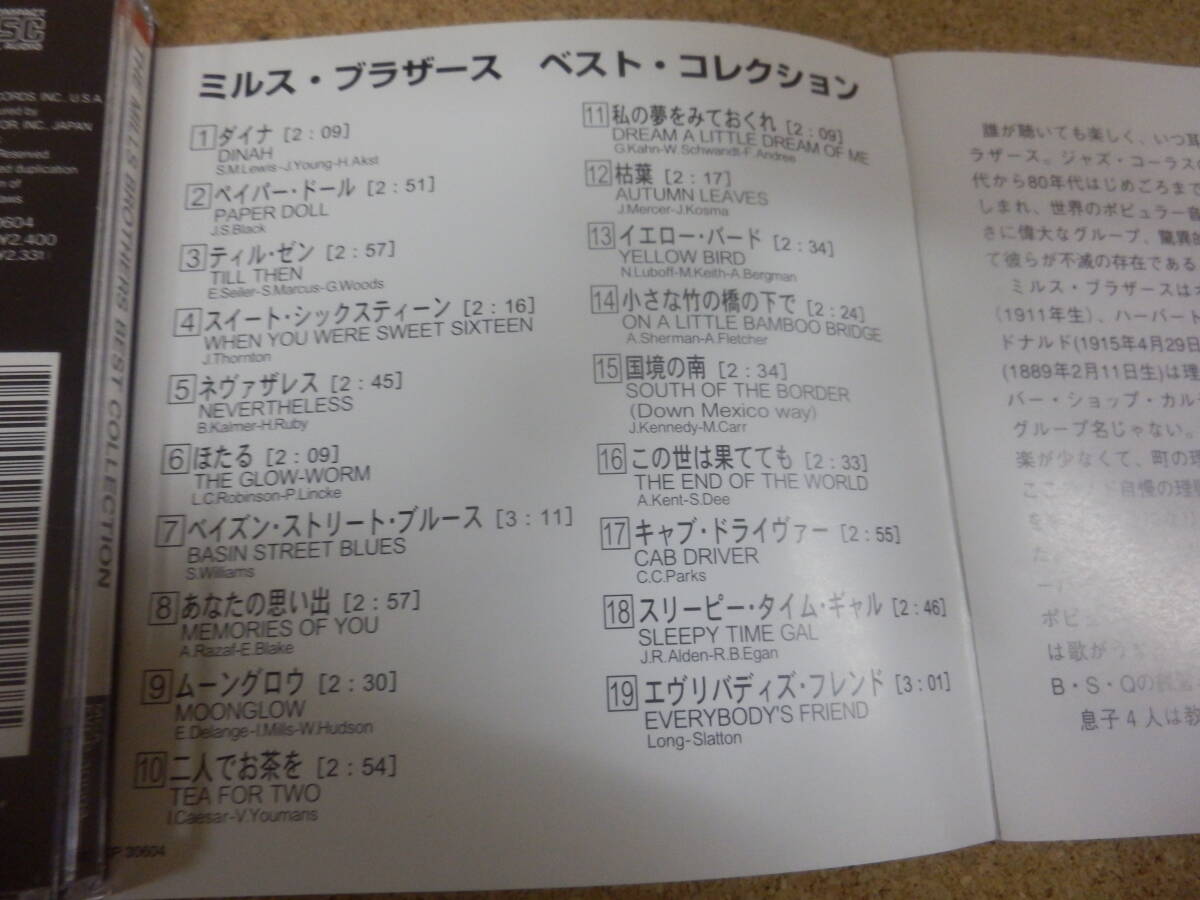 COMPACT
DISC
AUDIO
CORDS, INC., U.S.A.
INC., JAPAN
Reserved.
duplication
0604
¥2,400
¥2,331
THE MILLS BROTHERS BEST COLLECTION
ミルス・ブラザース ベスト・コレクション
1 ダイナ [2:09]
DINAH
S.M.Lewis-J.Young-H.Akst
2 ペイパー・ドール [2:51]
PAPER DOLL
J.S.Black
3 ティル・ゼン [2:57]
TILL THEN
E.Seiler-S.Marcus-G.Woods
4 スイート・シックスティーン [2:16]
WHEN YOU WERE SWEET SIXTEEN
J.Thornton
5 ネヴァザレス [2:45]
NEVERTHELESS
B.Kalmer-H.Ruby
6 ほたる [2:09]
THE GLOW-WORM
L.C.Robinson-P.Lincke
7 ベイズン・ストリート・ブルース [3:11]
BASIN STREET BLUES
S.Williams
8 あなたの思い出 [2:57]
MEMORIES OF YOU
A.Razaf-E.Blake
9 ムーングロウ [2:30]
MOONGLOW
E.Delange-I.Mills-W.Hudson
10 二人でお茶を [2:54]
TEA FOR TWO
I.Caesar-V.Youmans
P 30604
11 私の夢をみておくれ [2:09]
DREAM A LITTLE DREAM OF ME
G.Kahn-W.Schwandt-F.Andree
12 枯葉 [2:17]
AUTUMN LEAVES
J.Mercer-J.Kosma
13 イエロー・バード [2:34]
YELLOW BIRD
N.Luboff-M.Keith-A.Bergman
14 小さな竹の橋の下で [2:24]
ON A LITTLE BAMBOO BRIDGE
A.Sherman-A.Fletcher
15 国境の南 [2:34]
SOUTH OF THE BORDER
(Down Mexico way)
J.Kennedy-M.Carr
16 この世は果てても [2:33]
THE END OF THE WORLD
A.Kent-S.Dee
17 キャブ・ドライヴァー [2:55]
CAB DRIVER
C.C.Parks
18 スリーピー・タイム・ギャル [2:46]
SLEEPY TIME GAL
J.R.Alden-R.B.Egan
19 エヴリバディズ・フレンド [3:01]
EVERYBODY'S FRIEND
Long-Slatton
誰が聴いても楽しく、いつ耳
ラザース。ジャズ・コーラスの
代から80年代はじめごろまで
しまれ、世界のポピュラー音
さに偉大なグループ、驚異的
て彼らが不滅の存在である
ミルス・ブラザースはオ
(1911年生)、ハーバート
ドナルド(1915年4月29日
(1889年2月11日生)は理
バー・ショップ・カル
グループ名じゃない。
楽が少なくて、町の理
自慢の理
ポピュ
は歌がう
B・S・Qの
息子4人は教